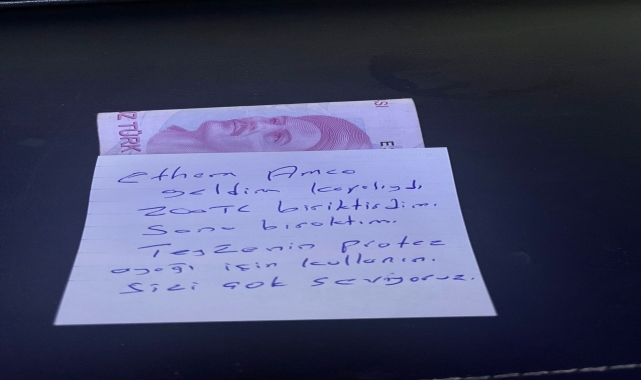 Z TÜRK
Sİ
E
Ethem Amca
geldim kapalıydı
200TL biriktirdim.
Sana bıraktım.
Teyzenin protez
ayağı için kullanın.
Sizi çok seviyoruz.